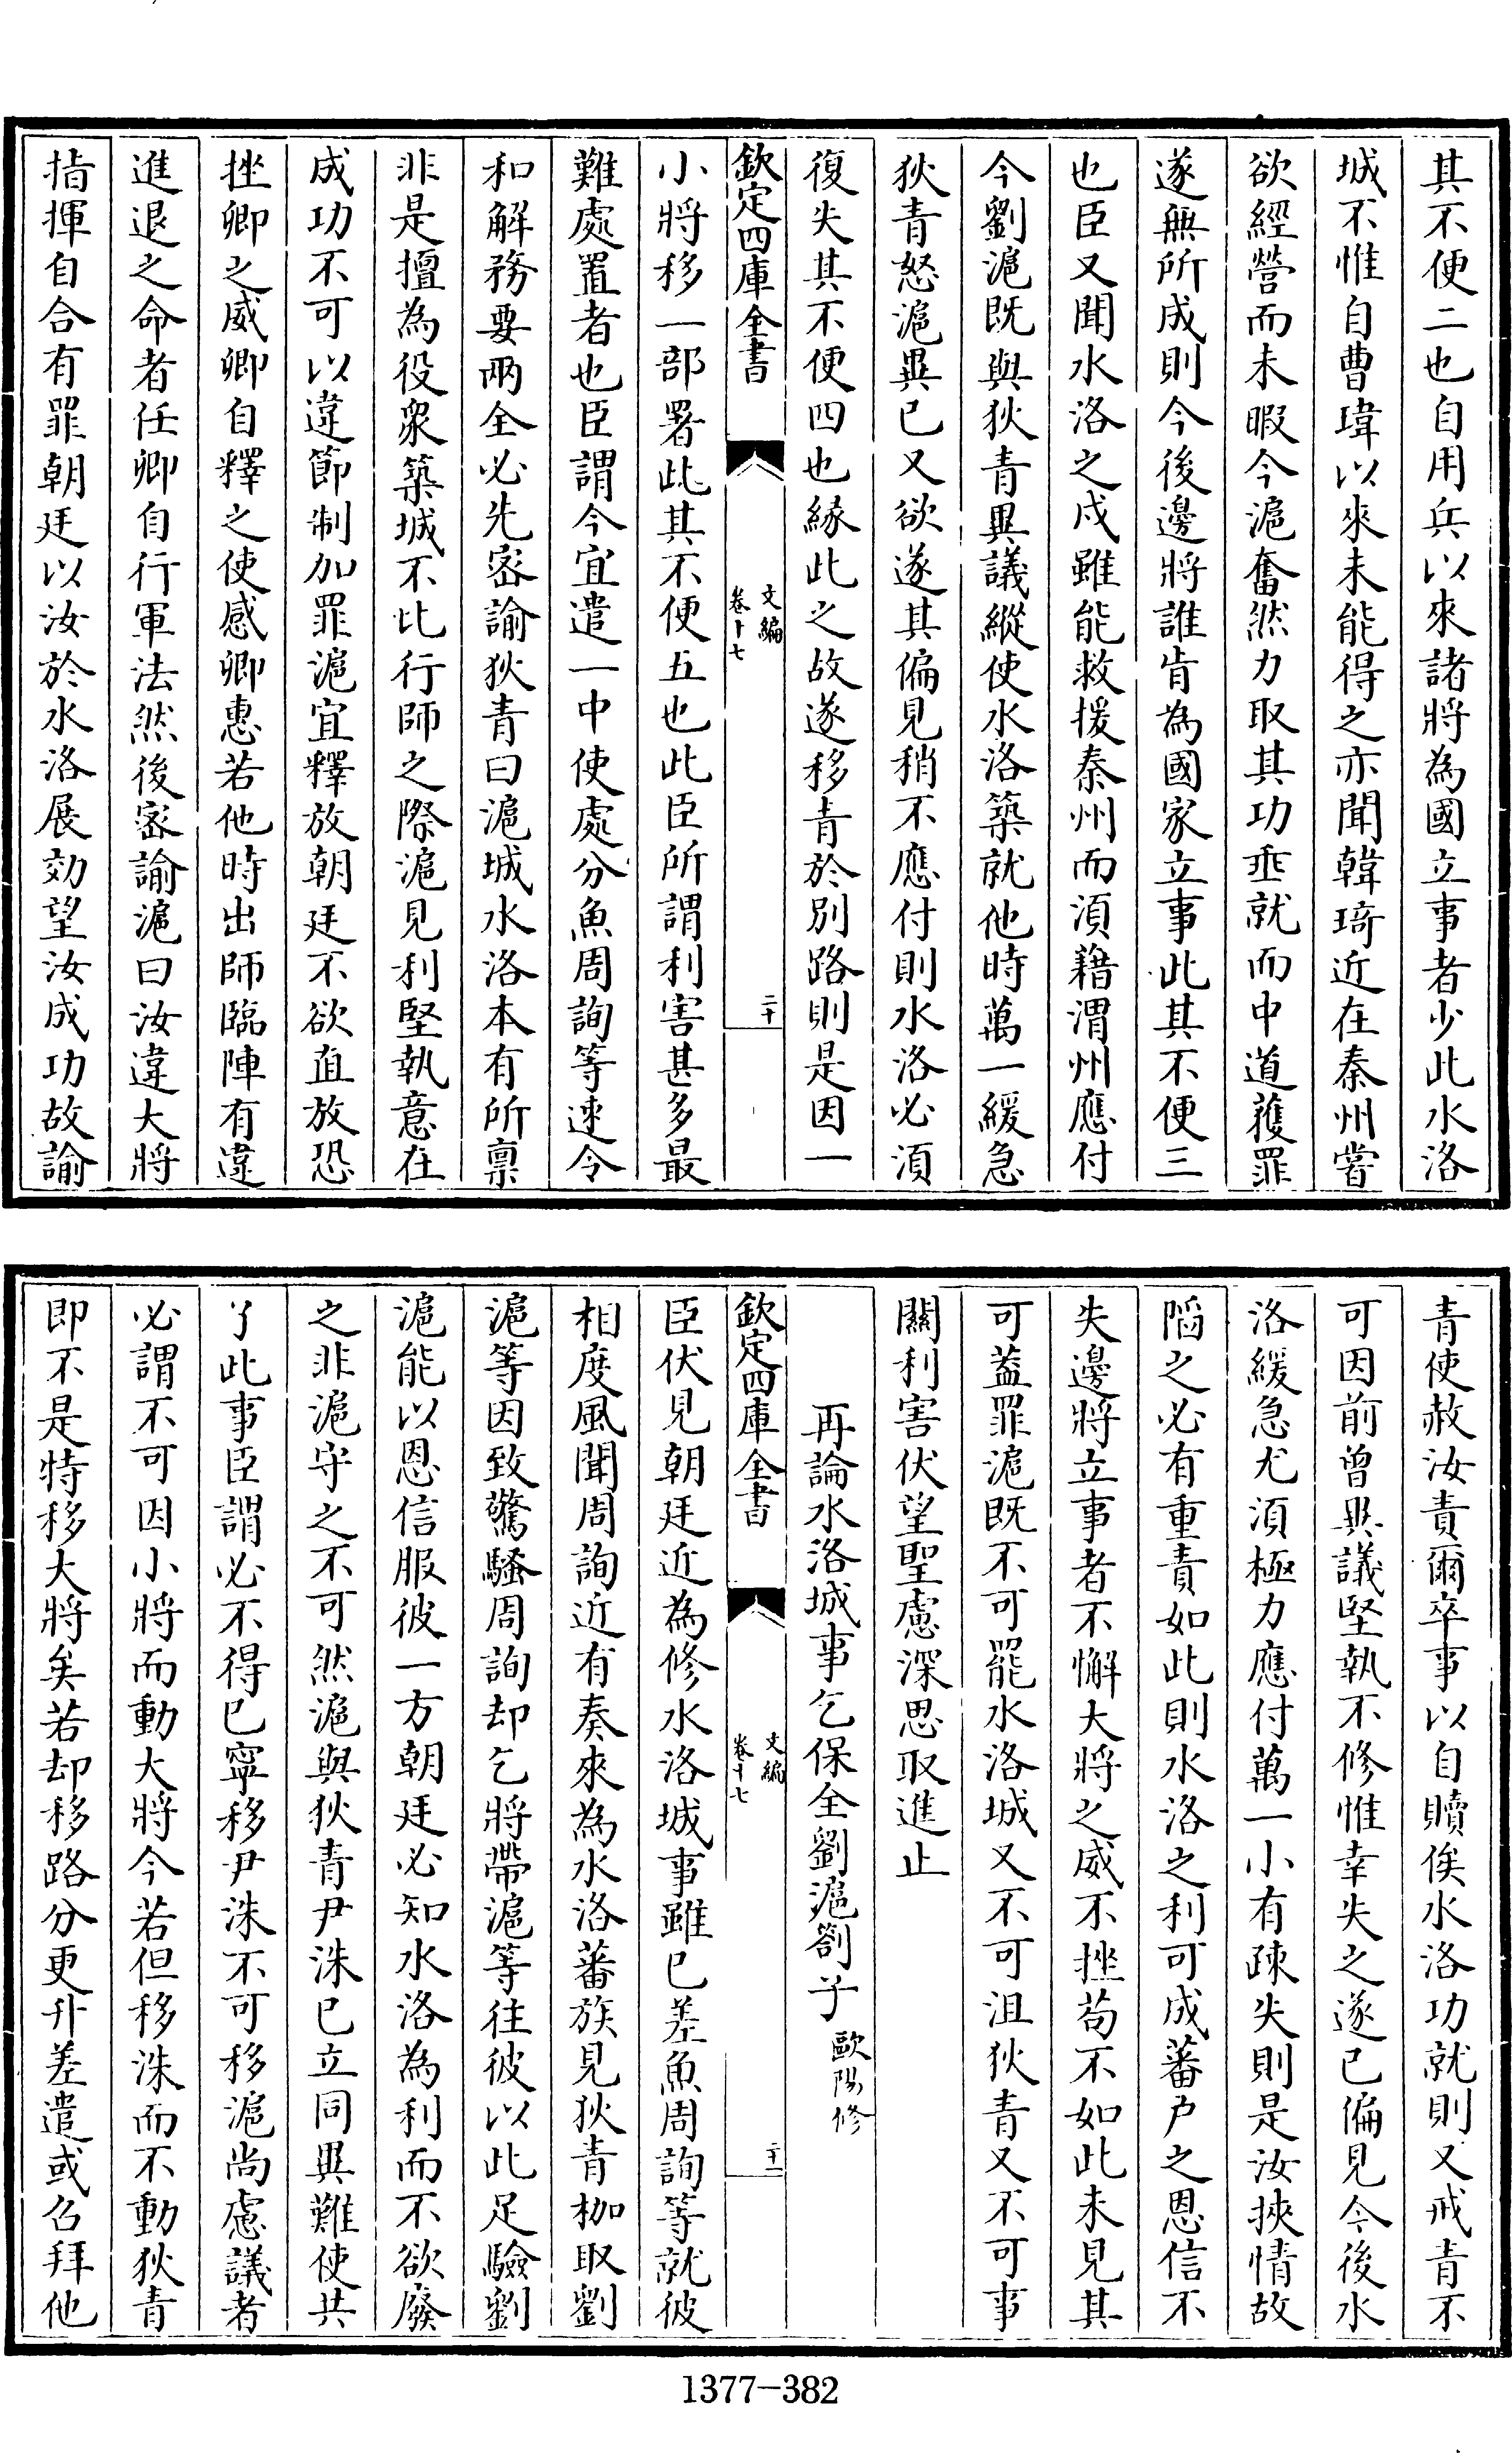 其不便二也自用兵以來諸將為國立事者少此水洛
城不惟自曹瑋以來未能得之亦聞韓琦近在秦州嘗
欲經營而未暇今滬奮然力取其功垂就而中道獲罪
遂無所成則今後邊將誰肯為國家立事此其不便三
也臣又聞水洛之戍雖能救援秦州而湏藉渭州應付
今劉滬既與狄青異議縱使水洛築就他時萬一緩急
狄青怒滬異已又欲遂其偏見稍不應付則水洛必湏
復失其不便四也緣此之故遂移青於别路則是因一
欽定四庫全書
文編
卷十七
二十
小將移一部署此其不便五也此臣所謂利害甚多最
難處置者也臣謂今宜遣一中使處分魚周詢等速令
和解務要兩全必先密諭狄青曰滬城水洛本有所禀
非是擅為役衆築城不比行師之際滬見利堅執意在
成功不可以違節制加罪滬宜釋放朝廷不欲直放恐
挫卿之威卿自釋之使感卿惠若他時出師臨陣有違
進退之命者任卿自行軍法然後密諭滬曰汝違大將
指揮自合有罪朝廷以汝於水洛展効望汝成功故諭
青使赦汝責爾卒事以自贖俟水洛功就則又戒青不
可因前曾異議堅執不修惟幸失之遂已偏見今後水
洛緩急尤湏極力應付萬一小有疎失則是汝挾情故
陷之必有重責如此則水洛之利可成蕃户之恩信不
失邊將立事者不懈大將之威不挫苟不如此未見其
可葢罪滬既不可罷水洛城又不可沮狄青又不可事
關利害伏望聖慮深思取進止
再論水洛城事乞保全劉滬劄子 歐陽修
欽定四庫全書
文編
卷十七
二十一
臣伏見朝廷近為修水洛城事雖已差魚周詢等就彼
相度風聞周詢近有奏來為水洛蕃族見狄青枷取劉
滬等因致驚騷周詢却乞將帶滬等往彼以此足驗劉
滬能以恩信服彼一方朝廷必知水洛為利而不欲廢
之非滬守之不可然滬與狄青尹洙已立同異難使共
了此事臣謂必不得已寧移尹洙不可移滬尚慮議者
必謂不可因小將而動大將今若但移洙而不動狄青
即不是特移大將矣若却移路分更升差遣或召拜他
1377-382